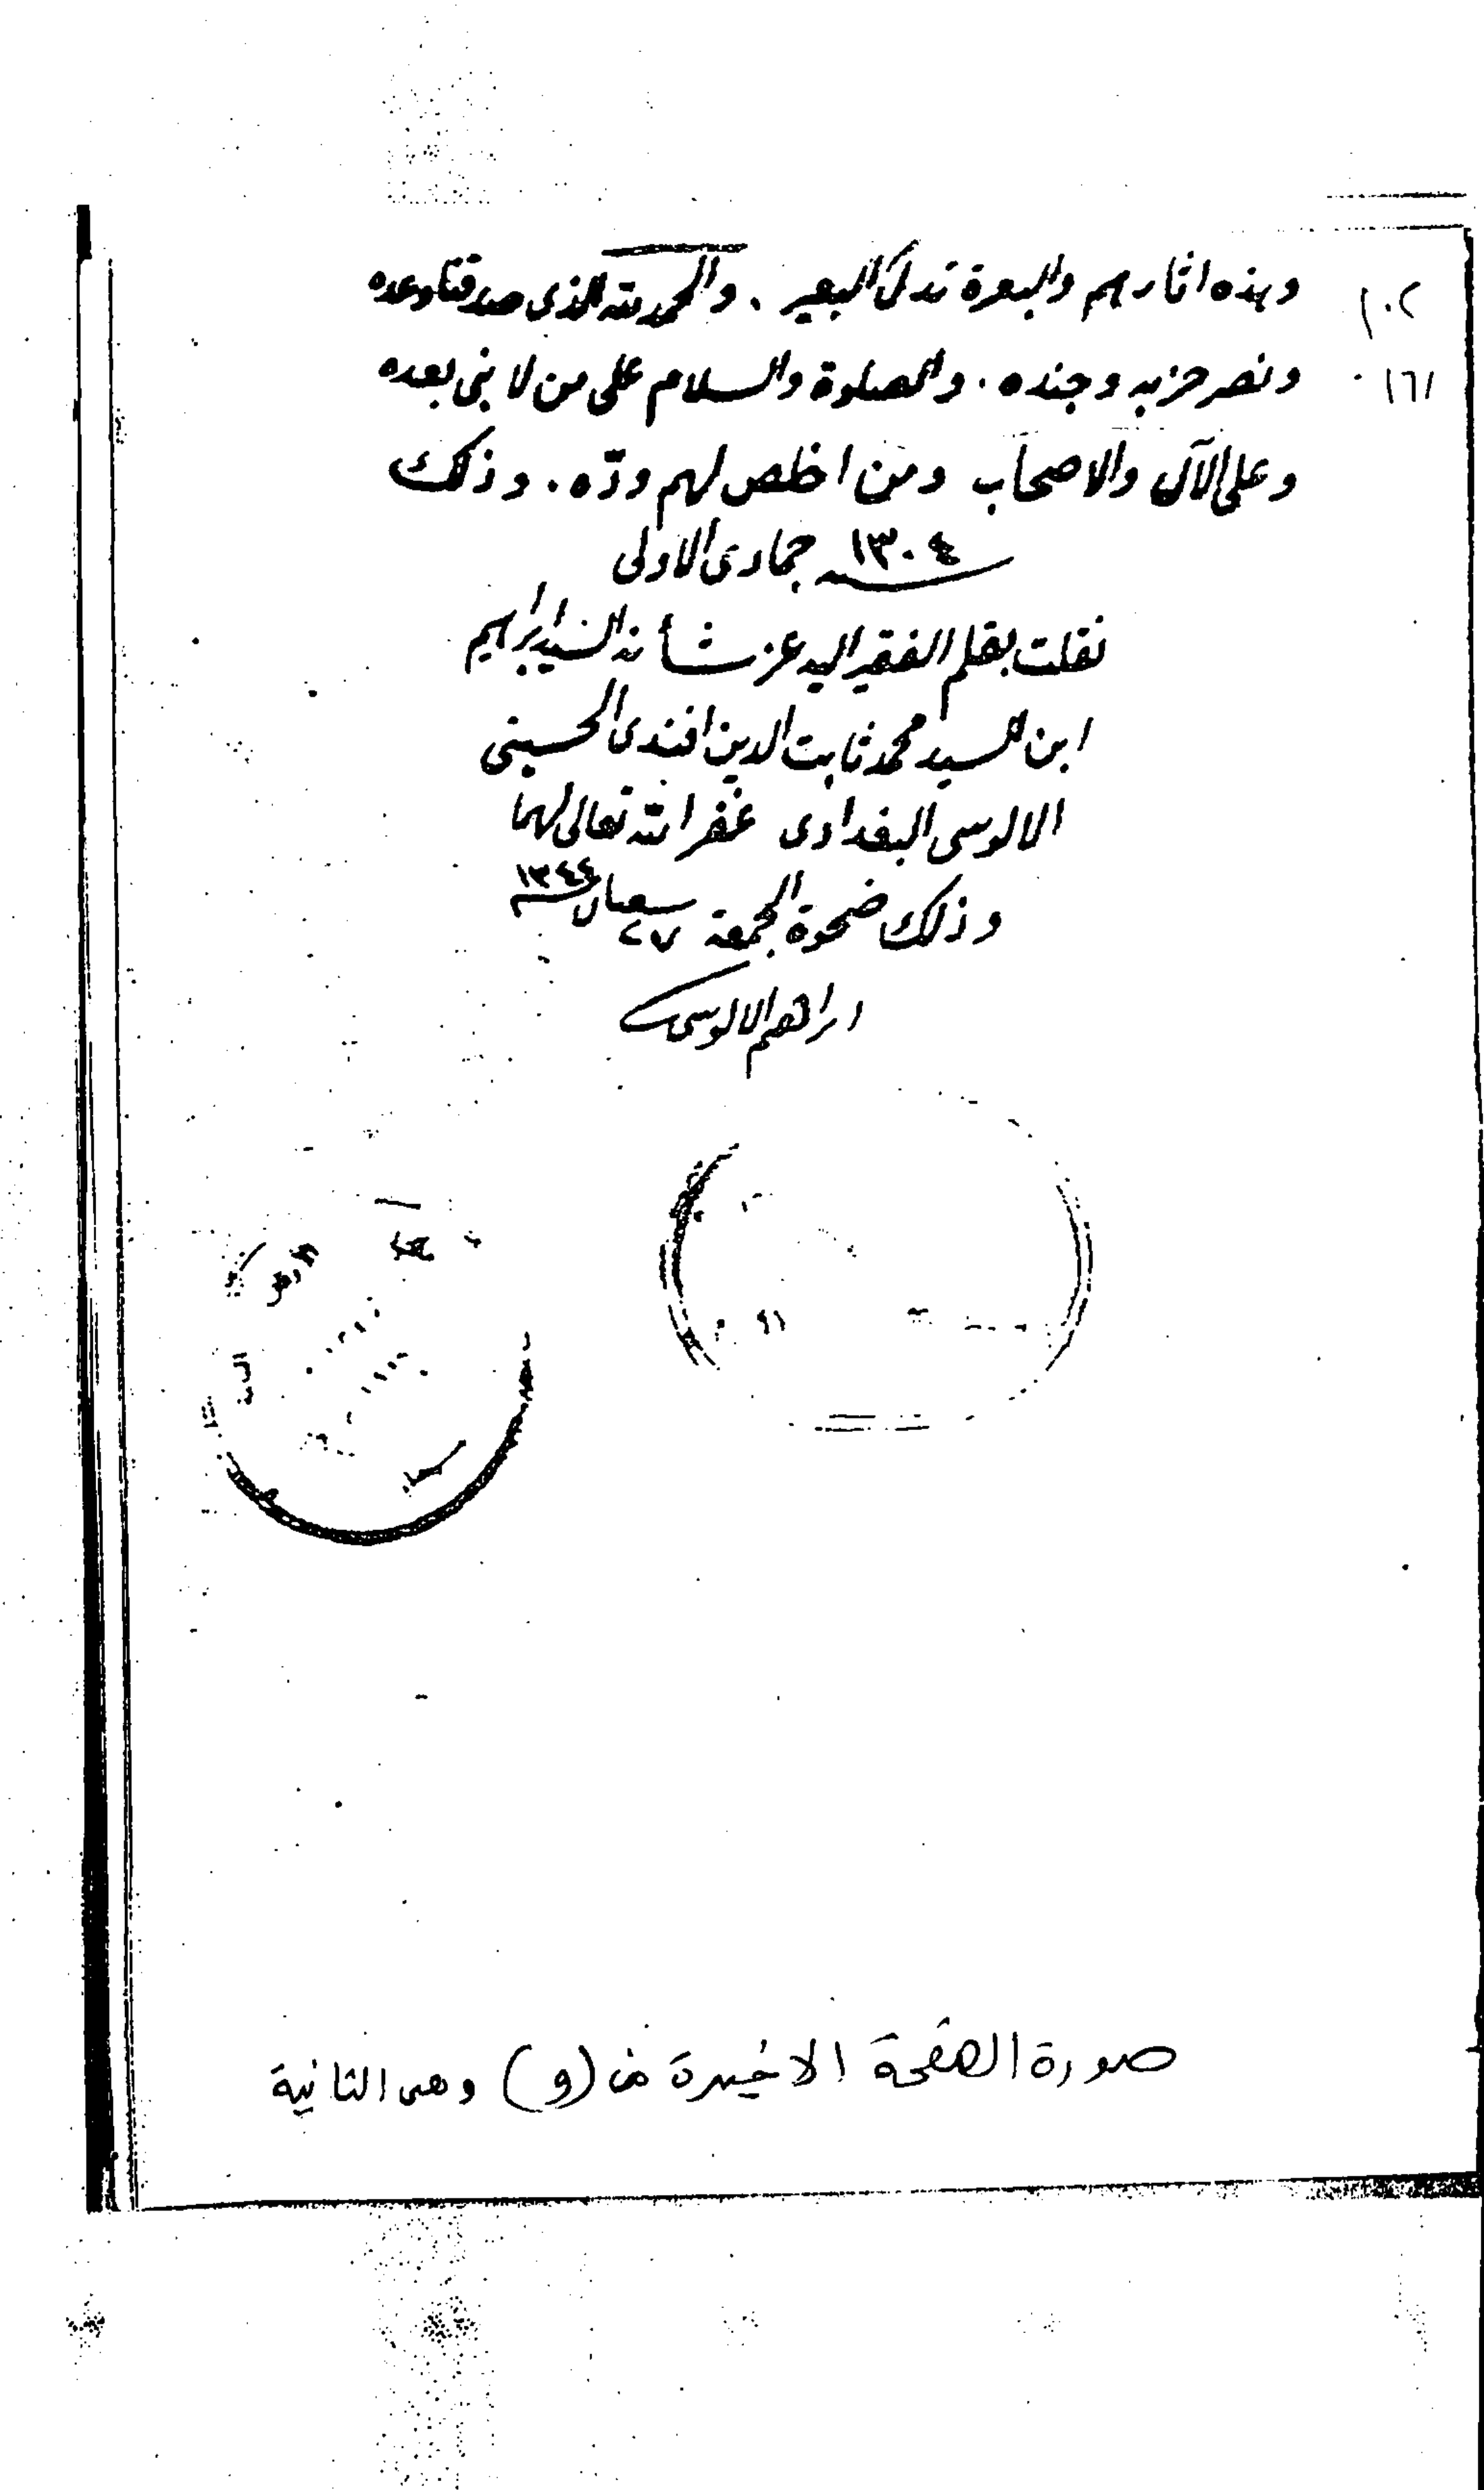 وهذه اثارهم والبعرة تدل على البعير . والحمد لله الذى صدقنا وعده
ونصر حزبه وجنده . والصلوة والسلام على من لا نبى بعده
وعلى الآل والاصحاب ومن اخلص لهم ودّه . وذلك
١٣٠٤ سنه جمادى الاولى
نقلت بقلم الفقير اليه عز شأنه السيد ابراهيم
ابن السيد محمد ثابت الدين افندى الحسينى
الالوسى البغدادى غفر الله تعالى لهما
وذلك ضحوة الجمعة ٢٧ شعبان سنه ١٣٤٤
ابراهيم الالوسى
١٠٢
١٦١
صورة الصفحة الاخيرة من (و) وهى الثانية